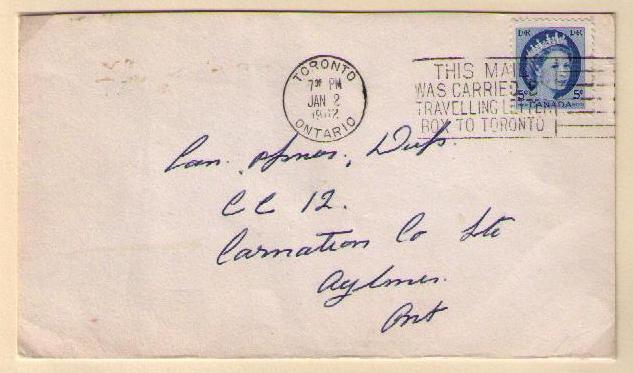 TORONTO
7 30 PM
JAN 2
1962
ONTARIO
THIS MAIL
WAS CARRIED
TRAVELLING LETTER
BOX TO TORONTO
5¢ 5¢
CANADA
Can.
CC 12.
Carnation Co Ltd
Aylmer.
Ont